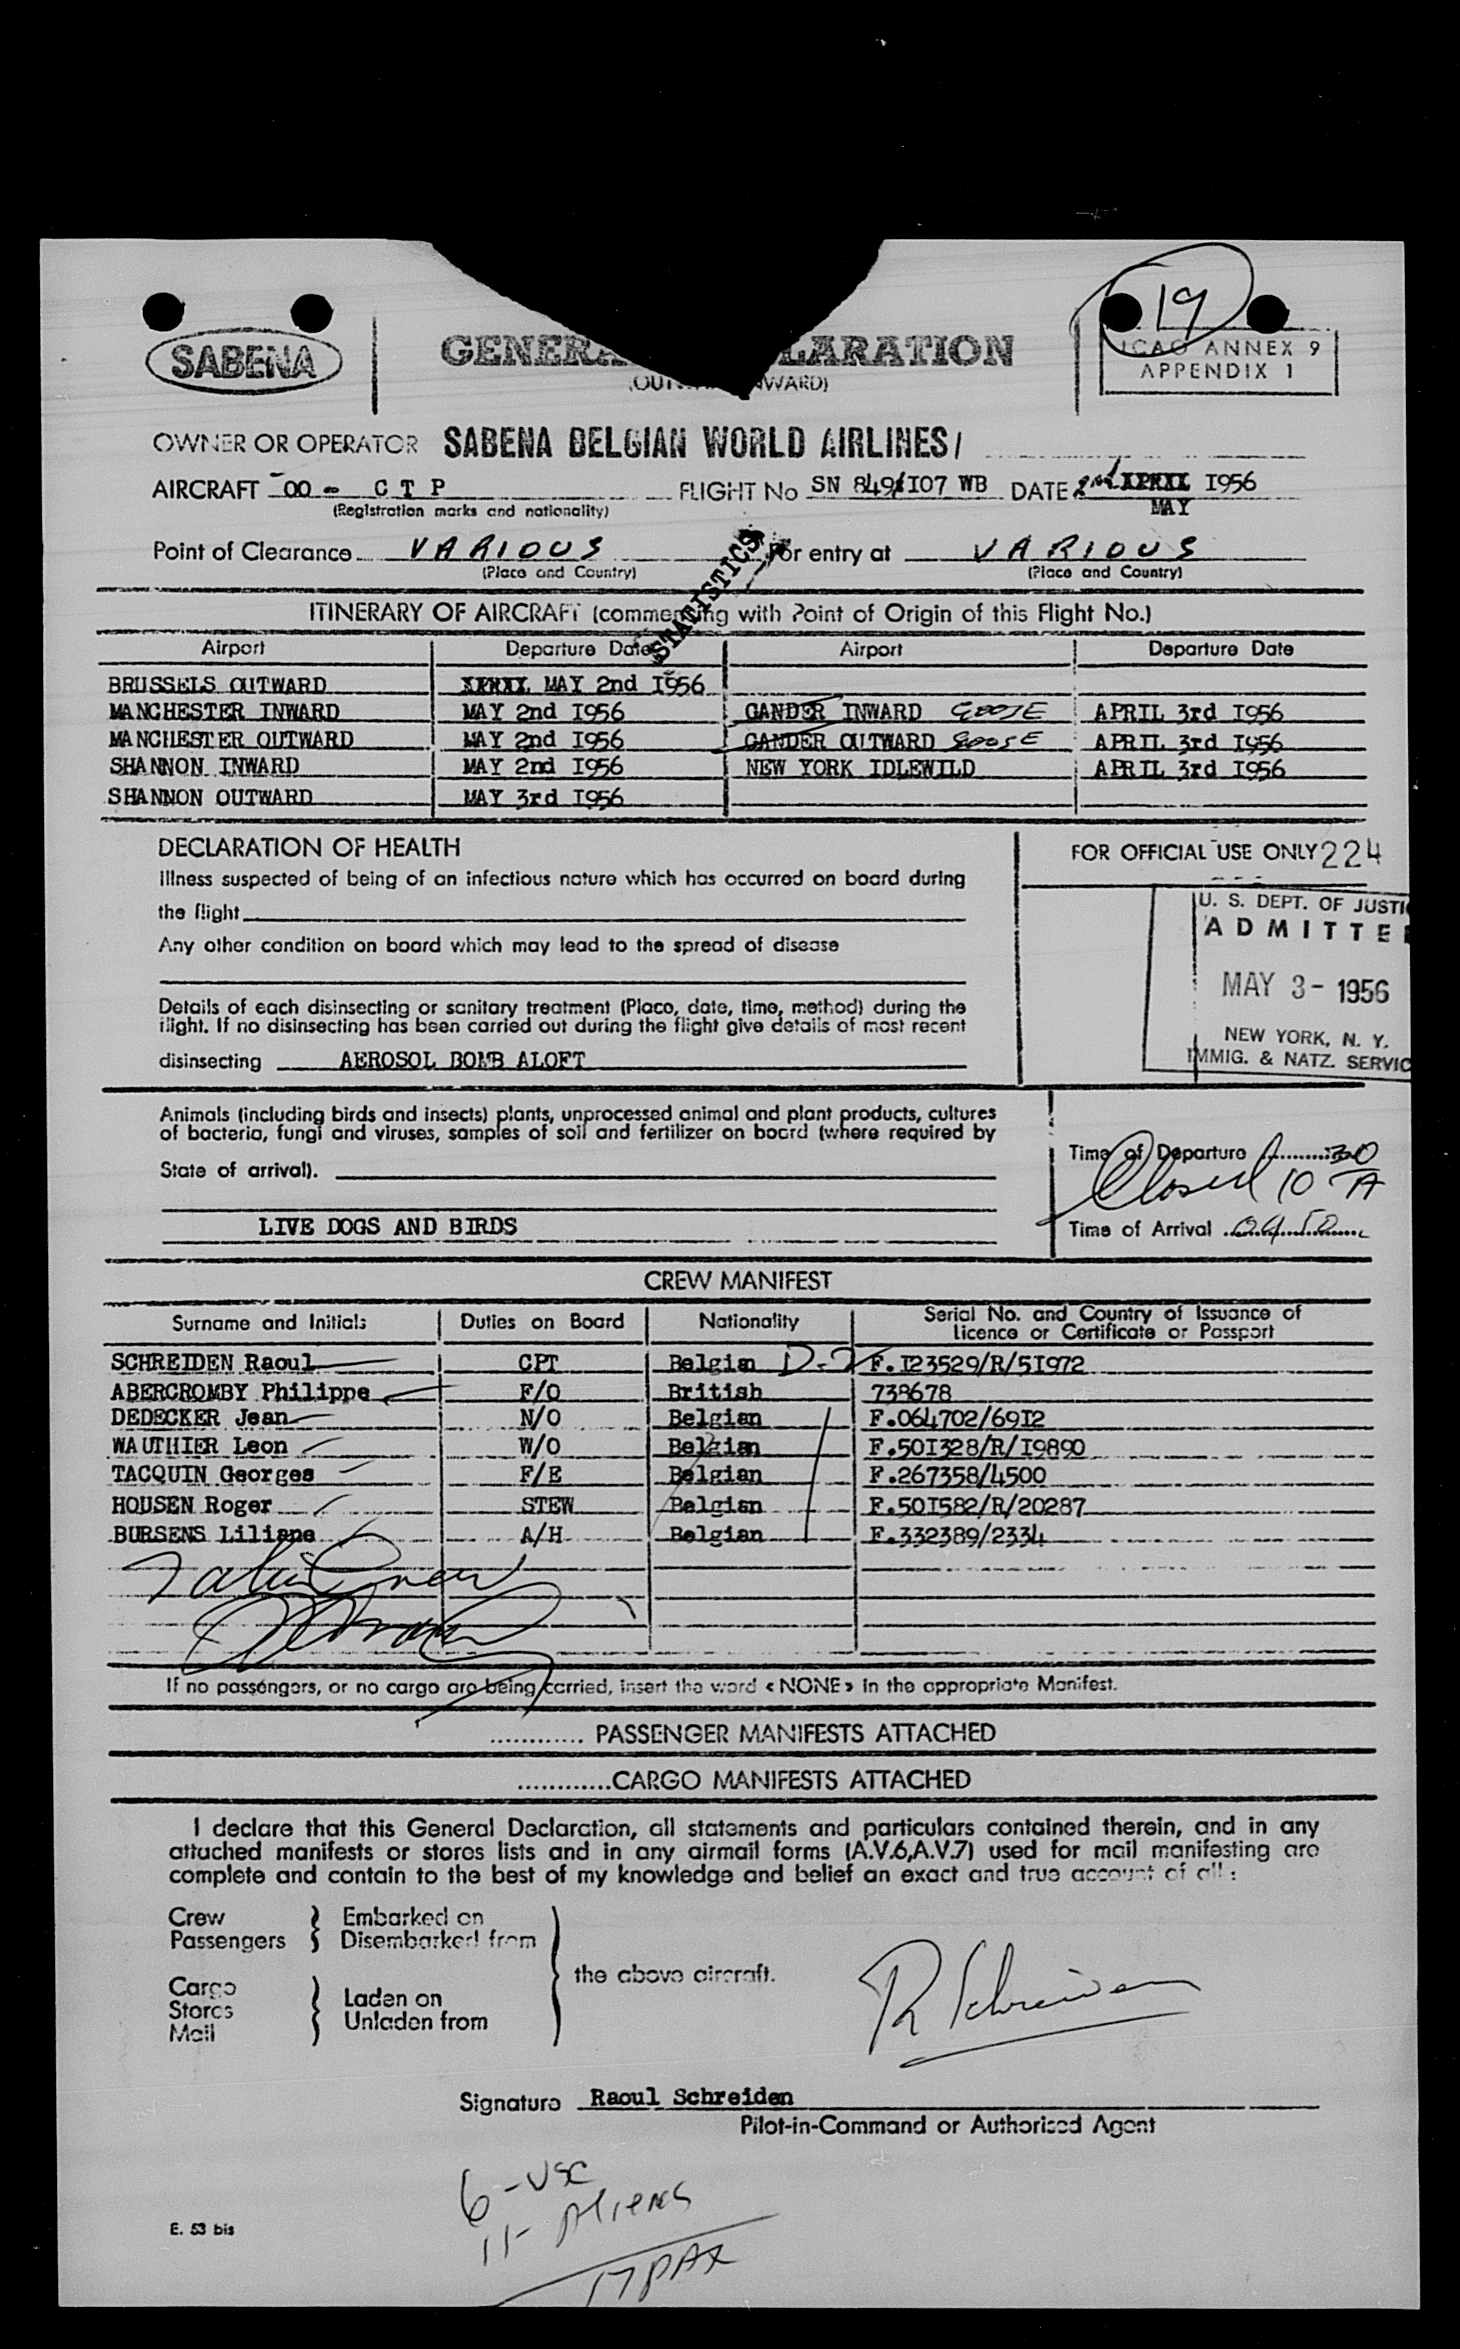 19
SABENA
GENERA LARATION
ICAO ANNEX 9
APPENDIX 1
OWNER OR OPERATOR SABENA BELGIAN WORLD AIRLINES/
AIRCRAFT OO - C T P FLIGHT No SN 849/I07 WB DATE 2nd I956
MAY
(Registration marks and nationality)
Point of Clearance VARIOUS For entry at VARIOUS
(Place and Country) (Place and Country)
STATISTICS
ITINERARY OF AIRCRAFT (commencing with Point of Origin of this Flight No.)
Airport Departure Date Airport Departure Date
BRUSSELS OUTWARD MAY 2nd I956
MANCHESTER INWARD MAY 2nd I956 GANDER INWARD GOOSE APRIL 3rd I956
MANCHESTER OUTWARD MAY 2nd I956 GANDER OUTWARD GOOSE APRIL 3rd I956
SHANNON INWARD MAY 2nd I956 NEW YORK IDLEWILD APRIL 3rd I956
SHANNON OUTWARD MAY 3rd I956
DECLARATION OF HEALTH
FOR OFFICIAL USE ONLY 224
Illness suspected of being of an infectious nature which has occurred on board during
the flight
Any other condition on board which may lead to the spread of disease
U. S. DEPT. OF JUSTI
ADMITTE
MAY 3- 1956
NEW YORK, N. Y.
IMMIG. & NATZ. SERVIC
Details of each disinsecting or sanitary treatment (Place, date, time, method) during the
flight. If no disinsecting has been carried out during the flight give details of most recent
disinsecting AEROSOL BOMB ALOFT
Animals (including birds and insects) plants, unprocessed animal and plant products, cultures
of bacteria, fungi and viruses, samples of soil and fertilizer on board (where required by
State of arrival).
LIVE DOGS AND BIRDS
Time of Departure
Closed 10 30 A
Time of Arrival 0450
CREW MANIFEST
Surname and Initials Duties on Board Nationality Serial No. and Country of Issuance of
Licence or Certificate or Passport
SCHREIDEN Raoul CPT Belgian D-2 F.I23529/R/5I972
ABERCROMBY Philippe F/O British 738678
DEDECKER Jean N/O Belgian F.064702/69I2
WAUTHIER Leon W/O Belgian F.50I328/R/I9890
TACQUIN Georges F/E Belgian F.267358/4500
HOUSEN Roger STEW Belgian F.50I582/R/20287
BURSENS Liliane A/H Belgian F.332389/2334
If no passengers, or no cargo are being carried, insert the word «NONE» in the appropriate Manifest.
............ PASSENGER MANIFESTS ATTACHED
............CARGO MANIFESTS ATTACHED
I declare that this General Declaration, all statements and particulars contained therein, and in any
attached manifests or stores lists and in any airmail forms (A.V.6,A.V.7) used for mail manifesting are
complete and contain to the best of my knowledge and belief an exact and true account of all :
Crew Embarked on
Passengers Disembarked from
the above aircraft.
Cargo
Stores Laden on
Mail Unladen from
R Schreiden
Signature Raoul Schreiden
Pilot-in-Command or Authorised Agent
6-USC
11-Aliens
17 PAX
E. 53 bis